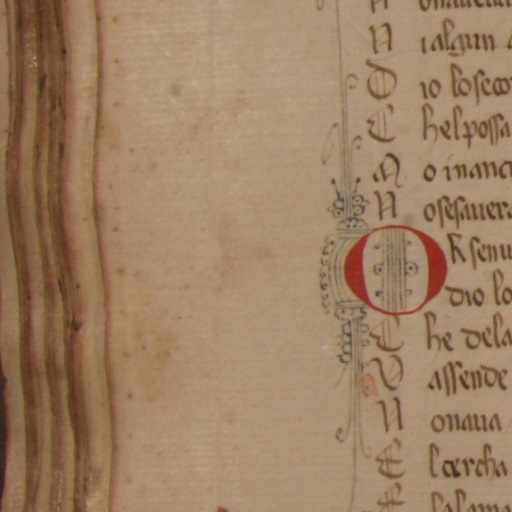 N ialgun
D io lo seco
C hel possa
M o inanci
N ose savera
OR sen u
dio lo
C he dela
V assende
N onaua
E l cercha